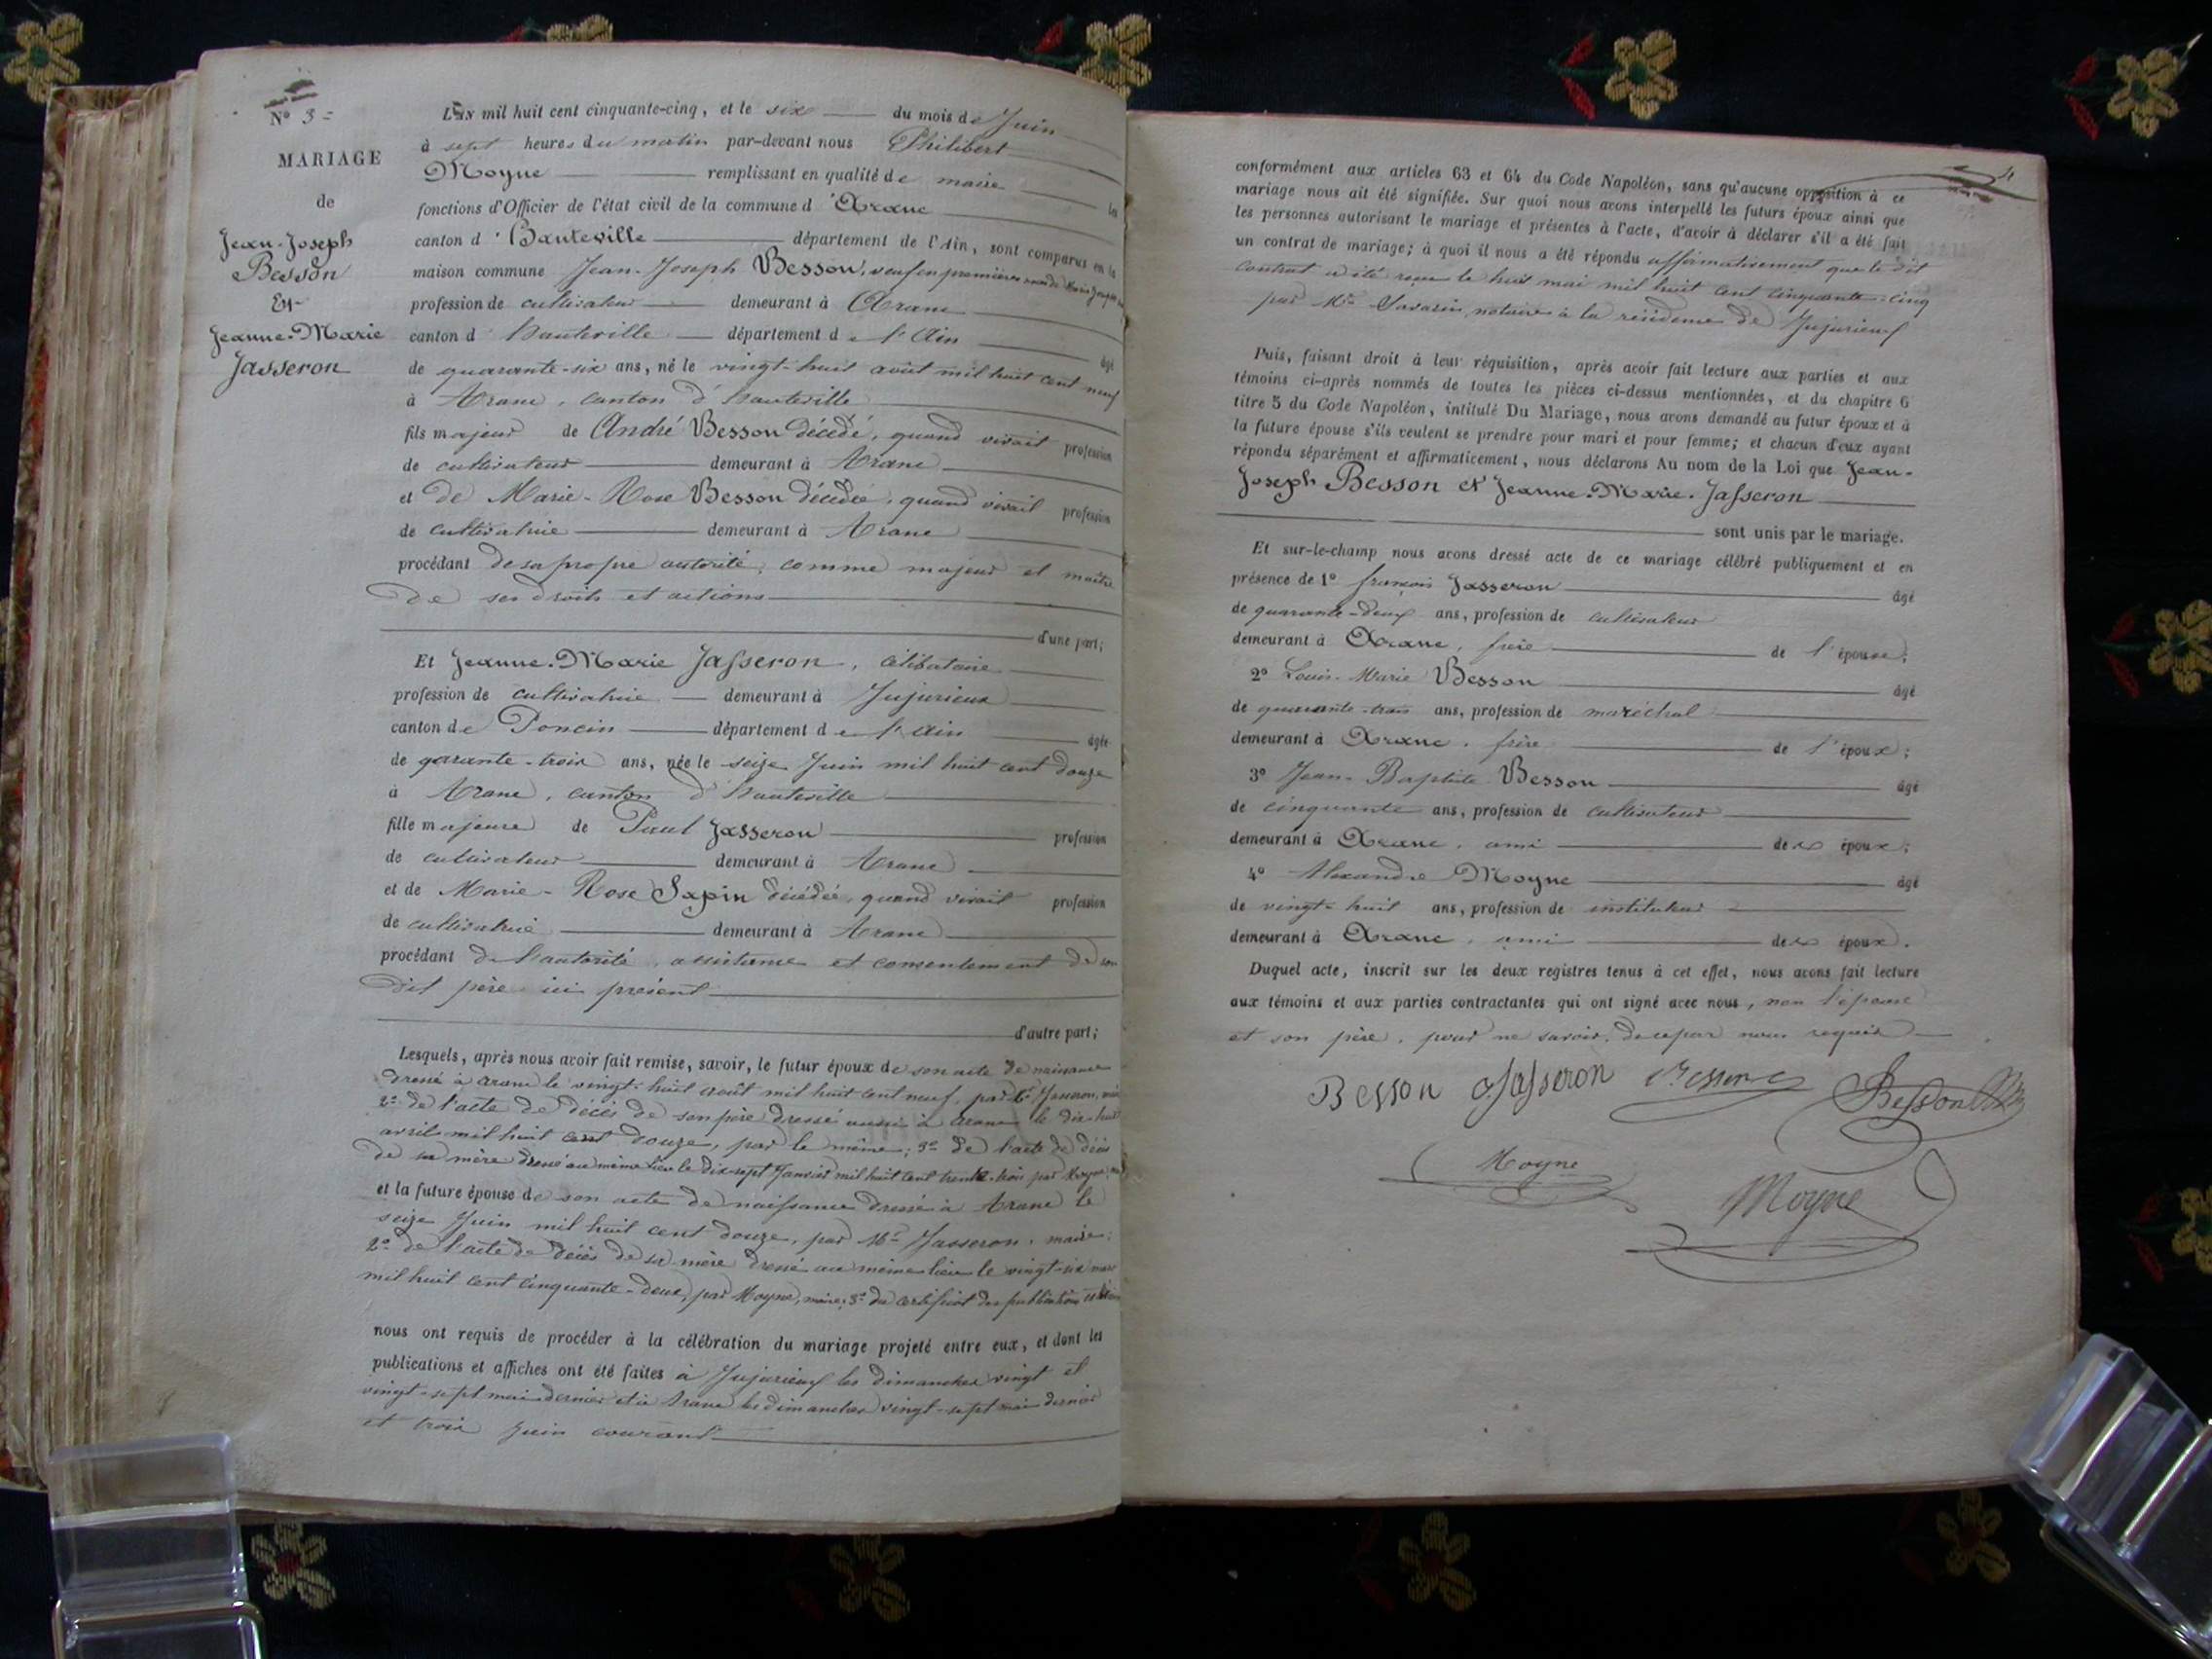 N° 3=
MARIAGE
de
Jean-Joseph
Besson
Et
Jeanne-Marie
Jasseron
L'an mil huit cent cinquante-cinq, et le six du mois de Juin
à sept heures du matin par-devant nous Philibert
Moyne remplissant en qualité de maire les
fonctions d'Officier de l'état civil de la commune d'Aranc
canton d'Hauteville département de l'Ain, sont comparus en la
maison commune Jean-Joseph Besson, veuf en premières noces de Marie
profession de cultivateur demeurant à Aranc
canton d'hauteville département de l'Ain âgé
de quarante-six ans, né le vingt-huit août mil huit cent neuf
à Aranc, canton d'hauteville
fils majeur de André Besson décédé, quand vivait profession
de cultivateur demeurant à Aranc
et de Marie-Rose Besson décédée, quand vivait profession
de cultivatrice demeurant à Aranc
procédant de sa propre autorité, comme majeur et maître
de ses droits et actions
d'une part;
Et Jeanne-Marie Jasseron, célibataire
profession de cultivatrice demeurant à Jujurieux
canton de Poncin département de l'Ain âgée
de qarante-trois ans, née le seize Juin mil huit cent douze
à Aranc, canton d'hauteville
fille majeure de Paul Jasseron profession
de cultivateur demeurant à Aranc
et de Marie-Rose Sapin décédée, quand vivait profession
de cultivatrice demeurant à Aranc
procédant de l'autorité, assistance et consentement de son
dit père ici présent
d'autre part;
Lesquels, après nous avoir fait remise, savoir, le futur époux de son acte de naissance
dressé à aranc le vingt-huit août mil huit cent neuf, par Jasseron, maire
2° de l'acte de décès de son père dressé aussi à aranc le dix-huit
avril mil huit cent douze, par le même; 3° de l'acte de décès
de sa mère dressé au même lieu le dix-sept Janvier mil huit cent trente-trois par Moyne,
et la future épouse de son acte de naissance dressé à Aranc le
seize Juin mil huit cent douze, par Mr Jasseron, maire;
2° de l'acte de décès de sa mère dressé au même lieu le vingt-six mars
mil huit cent cinquante-deux, par Moyne, maire; 3° du certificat des publications
nous ont requis de procéder à la célébration du mariage projeté entre eux, et dont les
publications et affiches ont été faites à Jujurieux les dimanches vingt et
vingt-sept mai dernier et à Aranc les dimanches vingt-sept mai dernier
et trois juin courant
4
conformément aux articles 63 et 64 du Code Napoléon, sans qu'aucune opposition à ce
mariage nous ait été signifiée. Sur quoi nous avons interpellé les futurs époux ainsi que
les personnes autorisant le mariage et présentes à l'acte, d'avoir à déclarer s'il a été fait
un contrat de mariage; à quoi il nous a été répondu affirmativement que le dit
contrat a été reçu le huit mai mil huit cent cinquante-cinq
par Me Savarin, notaire à la résidence de Jujurieux
Puis, faisant droit à leur réquisition, après avoir fait lecture aux parties et aux
témoins ci-après nommés de toutes les pièces ci-dessus mentionnées, et du chapitre 6
titre 5 du Code Napoléon, intitulé Du Mariage, nous avons demandé au futur époux et à
la future épouse s'ils veulent se prendre pour mari et pour femme; et chacun d'eux ayant
répondu séparément et affirmativement, nous déclarons Au nom de la Loi que Jean-
Joseph Besson et Jeanne-Marie Jasseron
sont unis par le mariage.
Et sur-le-champ nous avons dressé acte de ce mariage célébré publiquement et en
présence de 1° françois Jasseron âgé
de quarante-deux ans, profession de cultivateur
demeurant à Aranc, frère de l'épouse;
2° Louis-Marie Besson âgé
de quarante-trois ans, profession de maréchal
demeurant à Aranc, frère de l'époux;
3° Jean-Baptiste Besson âgé
de cinquante ans, profession de cultivateur
demeurant à Aranc, ami des époux;
4° Alexandre Moyne âgé
de vingt-huit ans, profession de instituteur
demeurant à Aranc, ami des époux.
Duquel acte, inscrit sur les deux registres tenus à cet effet, nous avons fait lecture
aux témoins et aux parties contractantes qui ont signé avec nous, non l'épouse
et son père, pour ne savoir, de ce par nous requis
Besson Jasseron Besson Besson
Moyne Moyne